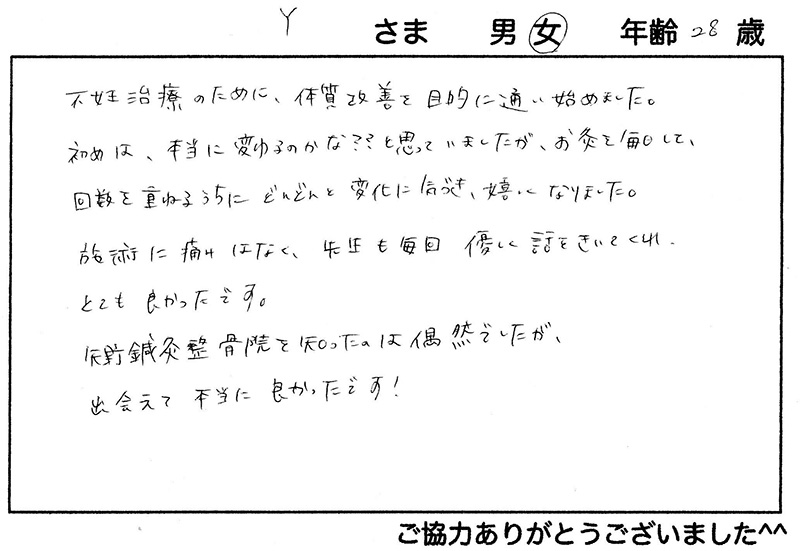 Y さま 男 女 年齢 28 歳
不妊治療のために、体質改善を目的に通い始めました。
初めは、本当に変わるのかな??と思っていましたが、お灸を毎日して、
回数を重ねるうちにどんどんと変化に気づき、嬉しくなりました。
施術に痛みはなく、先生も毎回優しく話をきいてくれ、
とても良かったです。
矢野鍼灸整骨院を知ったのは偶然でしたが、
出会えて本当に良かったです!
ご協力ありがとうございました^^